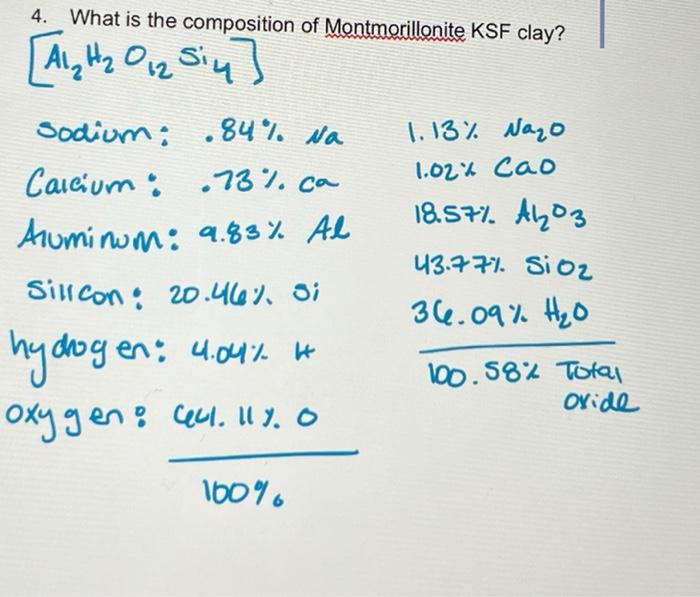 4. What is the composition of Montmorillonite KSF clay?
[Al₂ H₂ O₁₂ Si₄]
Sodium: .84% Na
Calcium: .73% Ca
Aluminum: 9.83% Al
Silicon: 20.46% Si
hydrogen: 4.04% H
oxygen: 64.11% O
100%
1.13% Na₂O
1.02% CaO
18.57% Al₂O₃
43.77% SiO₂
36.09% H₂O
100.58% Total
oxide